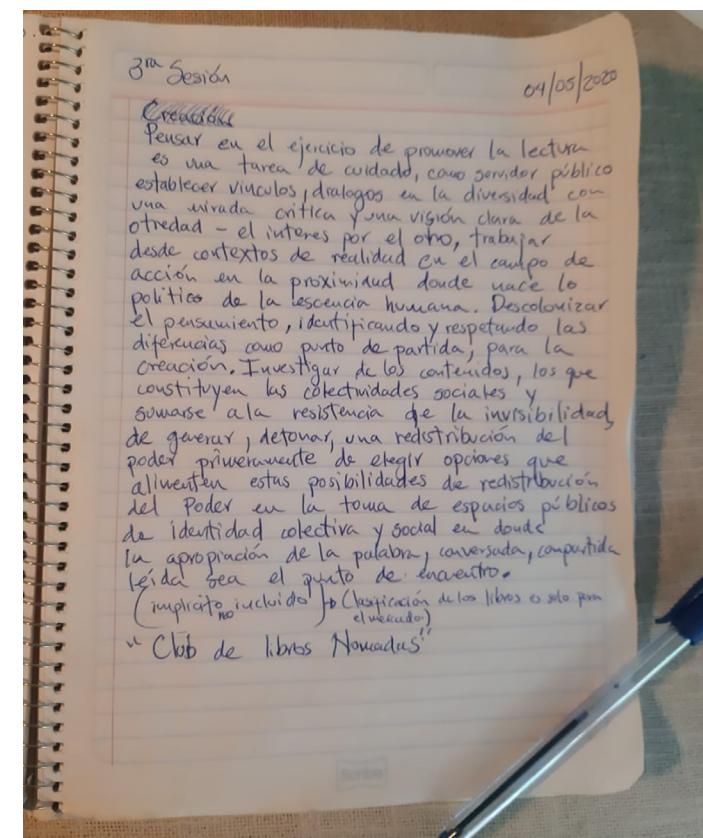 3ra Sesión
04/05/2020
Pensar en el ejercicio de promover la lectura
es una tarea de cuidado, como servidor público
establecer vinculos, dialogos en la diversidad con
una mirada critica y una visión clara de la
otredad - el interes por el otro, trabajar
desde contextos de realidad en el campo de
acción en la proximidad donde nace lo
politico de la escencia humana. Descolonizar
el pensamiento, identificando y respetando las
diferencias como punto de partida, para la
creación. Investigar de los contenidos, los que
constituyen las colectividades sociales y
sumarse a la resistencia de la invisibilidad,
de generar, detonar, una redistribución del
poder primeramente de elegir opciones que
alimenten estas posibilidades de redistribución
del Poder en la toma de espacios públicos
de identidad colectiva y social en donde
la apropiación de la palabra, conversada, compartida
leída sea el punto de encuentro.
(implicito no incluido) → (Clasificación de los libros es solo para
el mercado)
"Club de libros Nomadas"
Scribe